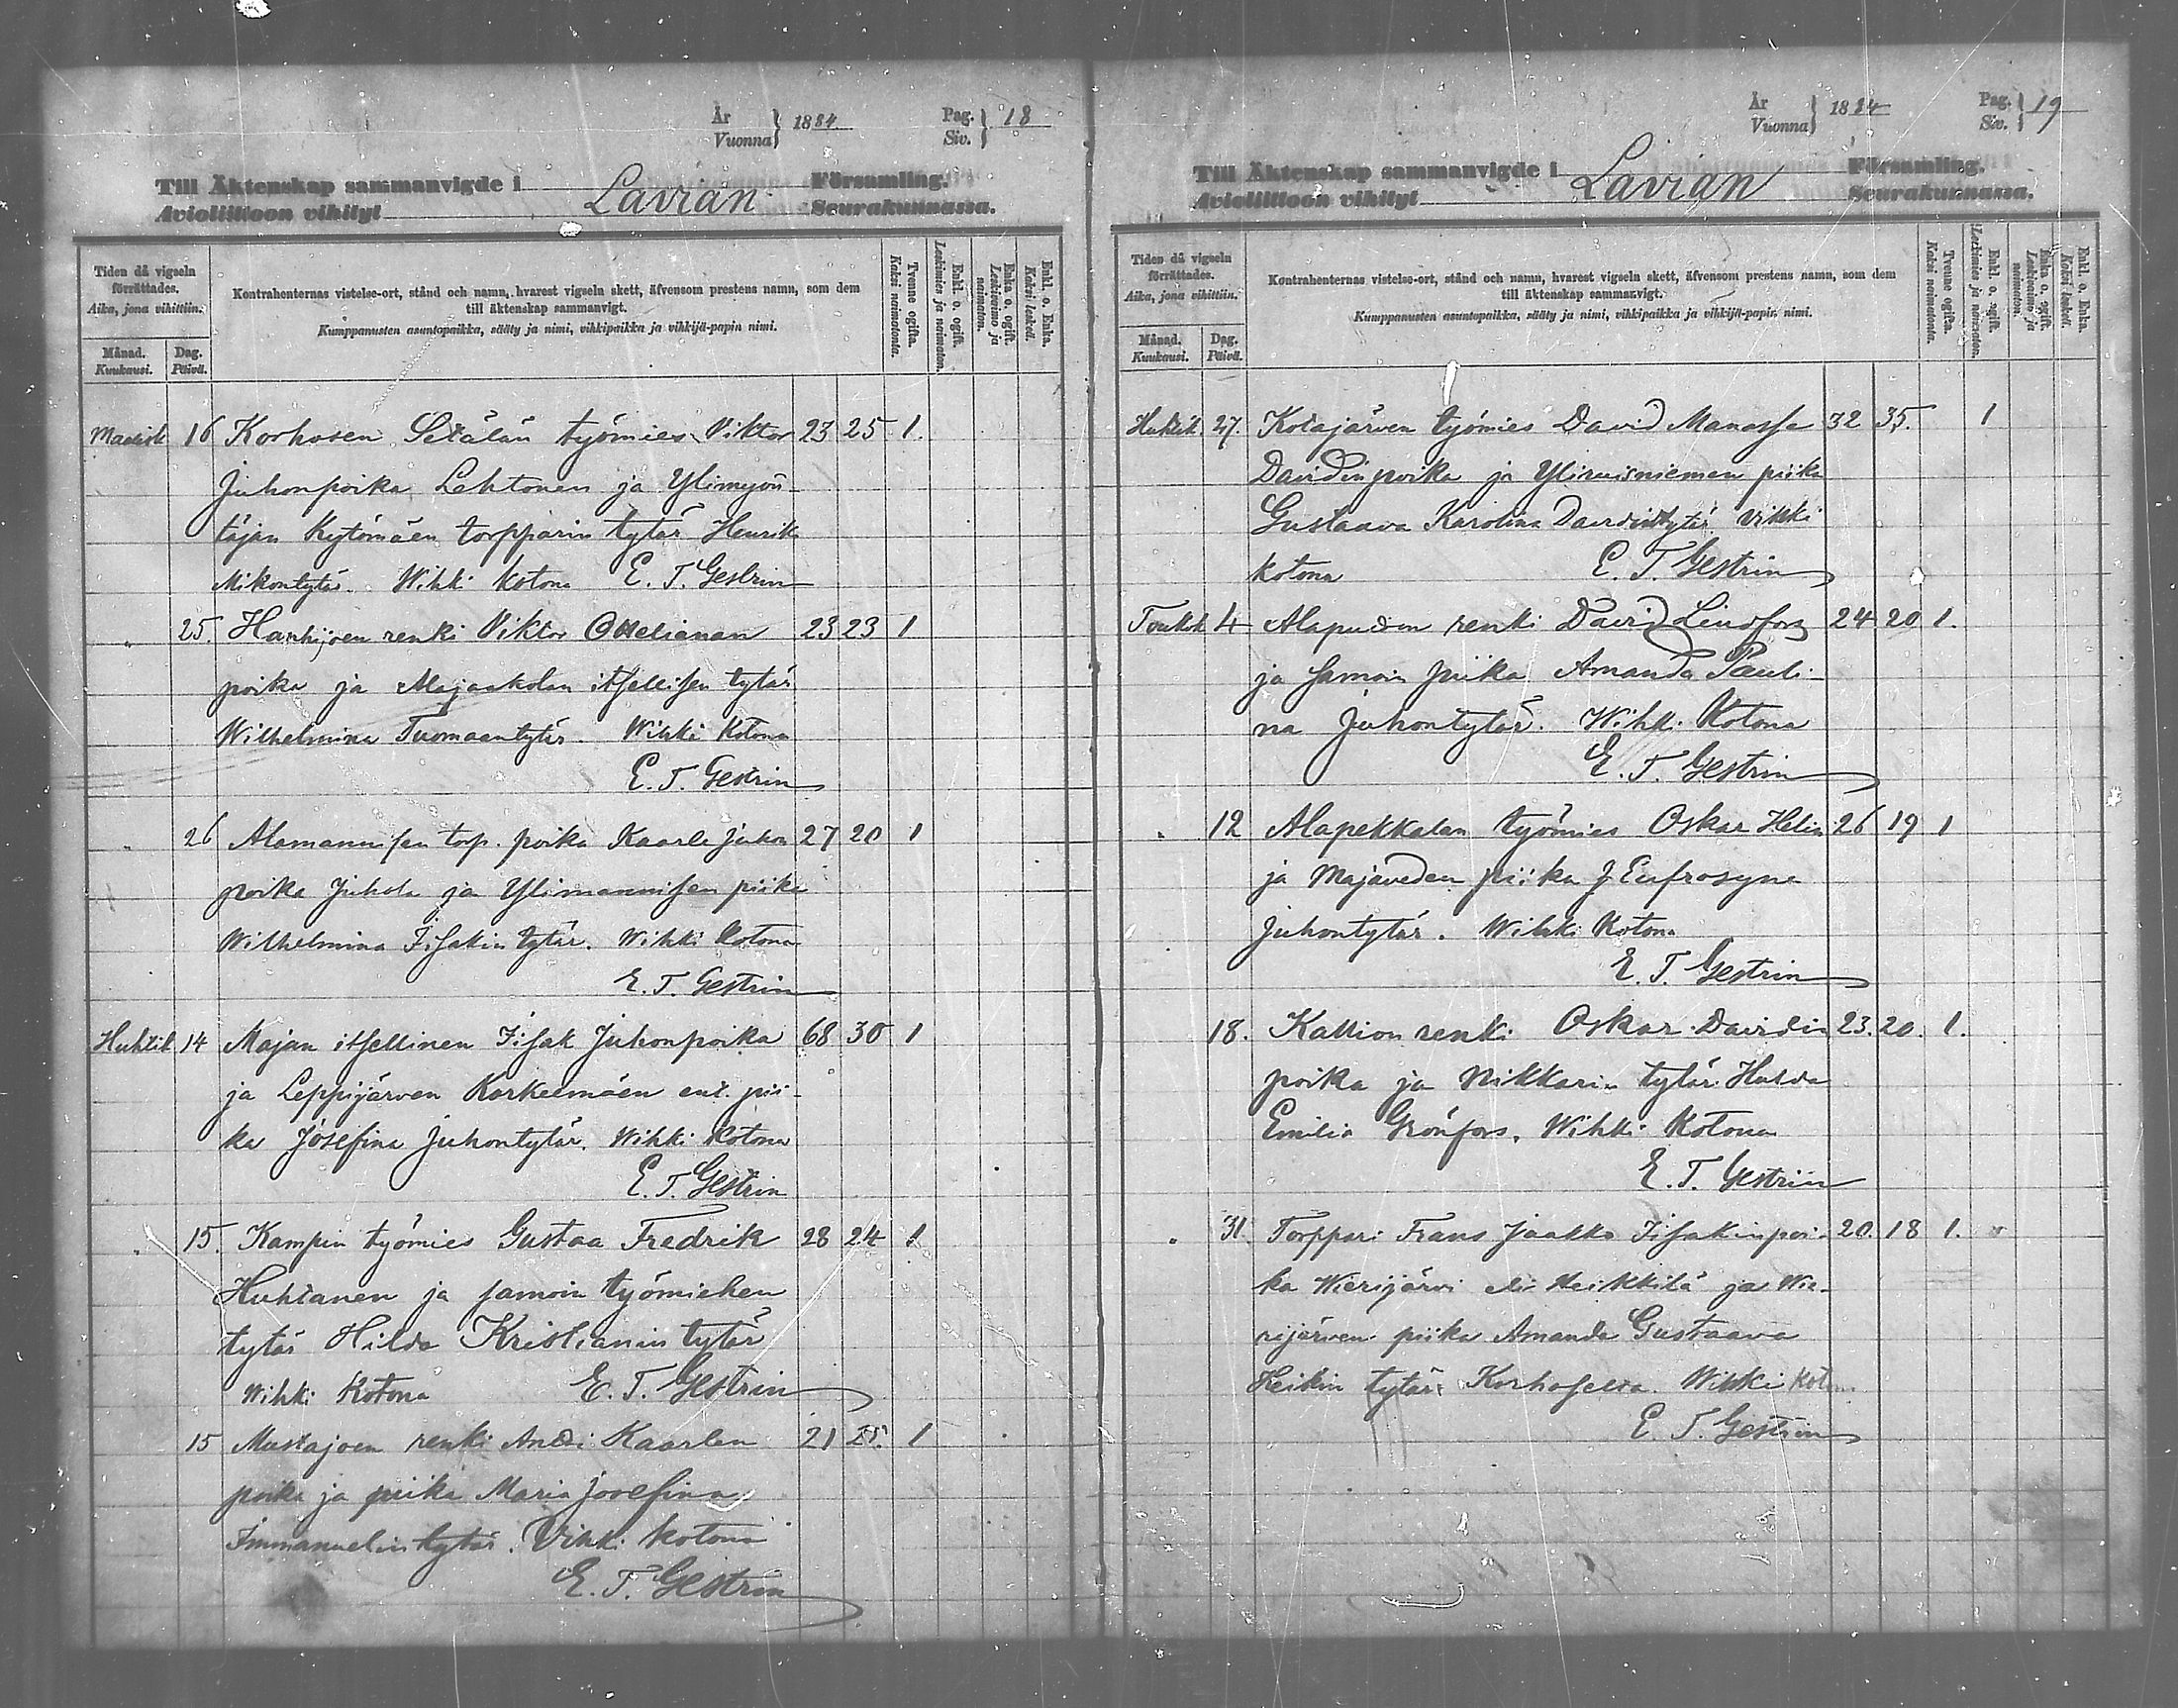 År
Vuonna } 1884.
Pag.
Siv. } 18
Till Äktenskap sammanvigde i Lavian Församling.
Avioliittoon vihityt Seurakunnassa.
Tiden då vigseln förrättades.
Aika, jona vihittiin.
Månad.
Kuukausi.
Dag.
Päivä.
Kontrahenternas vistelse-ort, stånd och namn, hvarest vigseln skett, äfvensom prestens namn, som dem
till äktenskap sammanvigt.
Kumppanusten asuntopaikka, sääty ja nimi, vihkipaikka ja vihkijä-papin nimi.
Tvenne ogifta.
Kaksi naimatonta.
Enkl. o. ogift.
Leskimies ja naimaton.
Enka o. ogift.
Leskivaimo ja naimaton.
Enkl. o. Enka.
Kaksi leskeä.
Maalisk 16 Korhosen Setälän työmies Viktor 23 25 1.
Juhonpoika Lehtonen ja Ylimyön-
täjän Kytömäen torpparin tytär Henrik
Mikontytär. Wihki kotona E. T. Gestrin
" 25. Hanhijoen renki Viktor Ottelianan 23 23 1
poika ja Alajaakolan itsellisen tytär
Wilhelmina Tuomaantytär. Wihki Kotona
E. T. Gestrin
" 26 Alamannisen torp. poika Kaarle Juhon 27 20 1
poika Juhola ja Ylimannisen piika
Wilhelmina Iisakin tytär. Wihki Kotona
E. T. Gestrin
Huhtik 14 Majan itsellinen Iisak Juhonpoika 68 30 1
ja Leppijärven Korkeemäen ent. pii-
ka Josefina Juhontytär. Wihki Kotona
E. T. Gestrin
" 15. Kampin työmies Gustaa Fredrik 28 24 1
Huhtanen ja samoin työmiehen
tytär Hilda Kristianin tytär
Wihki Kotona E. T. Gestrin
15 Mustajoen renki Antti Kaarlen 21 25. 1
poika ja piika Maria Josefina
Immanuelin tytär. Vihki kotona
E. T. Gestrin
År
Vuonna } 1884
Pag.
Siv. } 19
Till Äktenskap sammanvigde i Lavian Församling.
Avioliittoon vihityt Seurakunnassa.
Tiden då vigseln förrättades.
Aika, jona vihittiin.
Månad.
Kuukausi.
Dag.
Päivä.
Kontrahenternas vistelse-ort, stånd och namn, hvarest vigseln skett, äfvensom prestens namn, som dem
till äktenskap sammanvigt.
Kumppanusten asuntopaikka, sääty ja nimi, vihkipaikka ja vihkijä-papin nimi.
Tvenne ogifta.
Kaksi naimatonta.
Enkl. o. ogift.
Leskimies ja naimaton.
Enka o. ogift.
Leskivaimo ja naimaton.
Enkl. o. Enka.
Kaksi leskeä.
Huhtik. 27. Kotajärven työmies David Manasse 32 35. 1
Davidinpoika ja Yliruisniemen piika
Gustaava Karolina Davidintytär Vihki
kotona E. T. Gestrin
Toukok 4 renki David Lindfors 24 20 1.
ja samoin piika Amanda Pauli-
na Juhontytär. Wihki Kotona
E. T. Gestrin
" 12 Alapekkalan työmies Oskar Helin 26 19 1
ja Majaveden piika J Eufrosyne
Juhontytär. Wihki Kotona
E. T. Gestrin
18. Kallion renki Oskar Davidin 23. 20. 1.
poika ja Nikkarin tytär Hulda
Emilia Grönfors. Wihki Kotona
E. T. Gestrin
" 31. Torppari Frans Jaakko Iisakinpoi- 20. 18 1.
ka Wierijärvi eli Heikkilä ja Wie-
rijärven piika Amanda Gustaava
Heikin tytär Korhoselta. Wihki koton
E. T. Gestrin